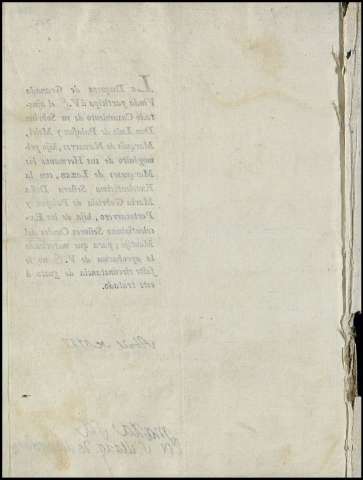 La Duquesa de Granada
Viuda participa á V. S. el ajus-
tado Casamiento de su Sobrino
Don Luis de Palafox y Melci,
Marqués de Navarres, hijo pri-
mogénito de sus Hermanos los
Marqueses de Lazan, con la
Excelentísima Señora Doña
María Gabriela de Palafox y
Portocarrero, hija de los Ex-
celentísimos Señores Condes del
Montijo; para que mereciendo
la aprobacion de V. S. no le
falte circunstancia de gusto á
este tratado.